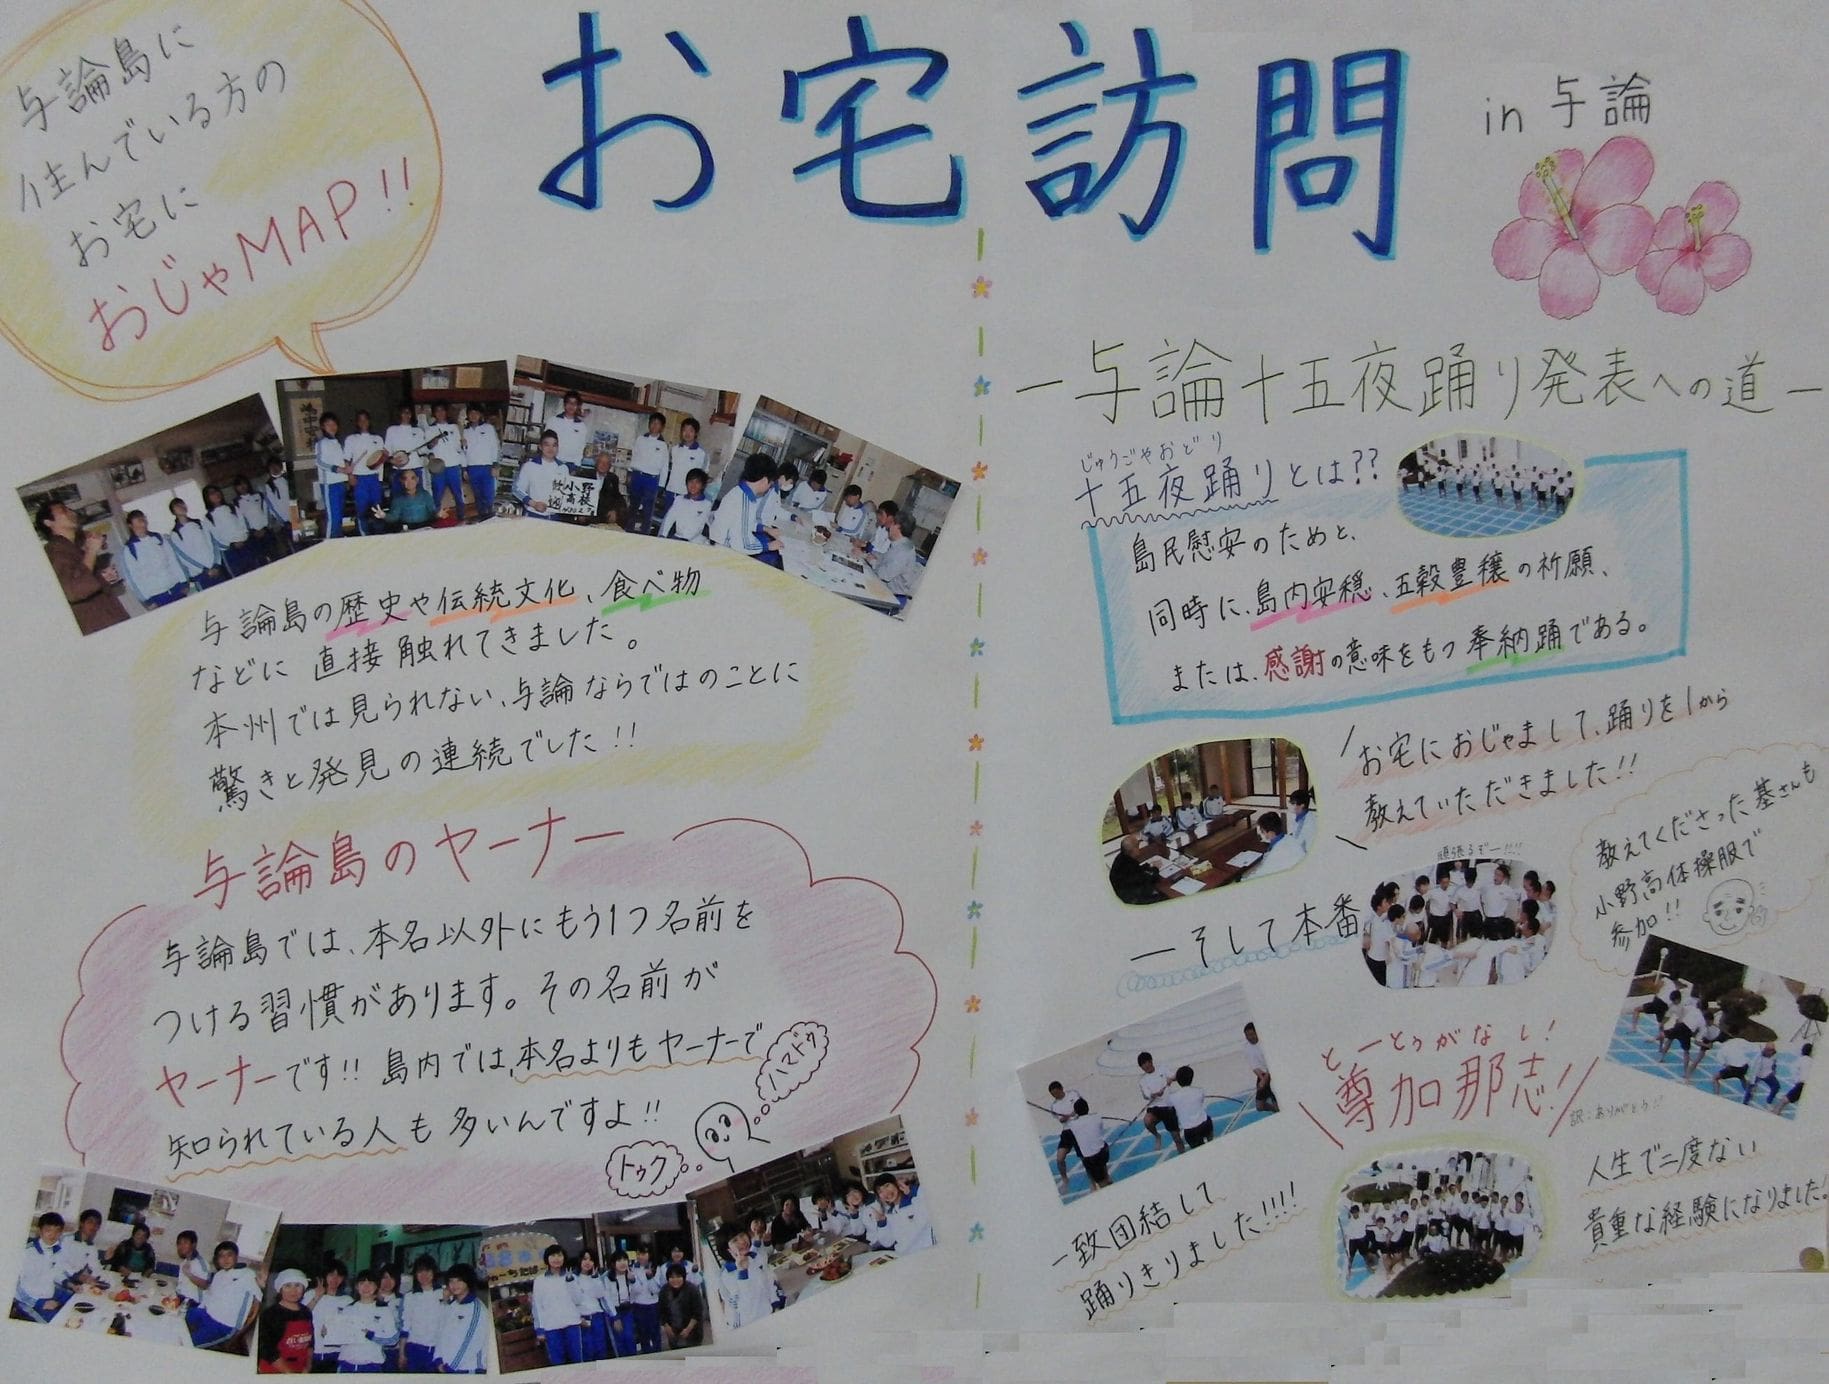 お宅訪問
in 与論
与論島に
住んでいる方の
お宅に
おじゃMAP!!
与論島の歴史や伝統文化、食べ物
などに直接触れてきました。
本州では見られない、与論ならではのことに
驚きと発見の連続でした!!
与論島のヤーナー
与論島では、本名以外にもう1つ名前を
つける習慣があります。その名前が
ヤーナーです!! 島内では、本名よりもヤーナーで
知られている人も多いんですよ!!
ハマドゥ
トゥク
ー与論十五夜踊り発表への道ー
じゅうごやおどり
十五夜踊りとは??
島民慰安のためと、
同時に、島内安穏、五穀豊穣の祈願、
または、感謝の意味をもつ奉納踊である。
お宅におじゃまして、踊りを1から
教えていただきました!!
頑張るぞー!!!!
教えてくださった基さんも
小野高体操服で
参加!!
ーそして本番
とーとぅがなし!
尊加那志!
訳:ありがとう!!
一致団結して
踊りきりました!!!!
人生で二度ない
貴重な経験になりました!
小野
高校